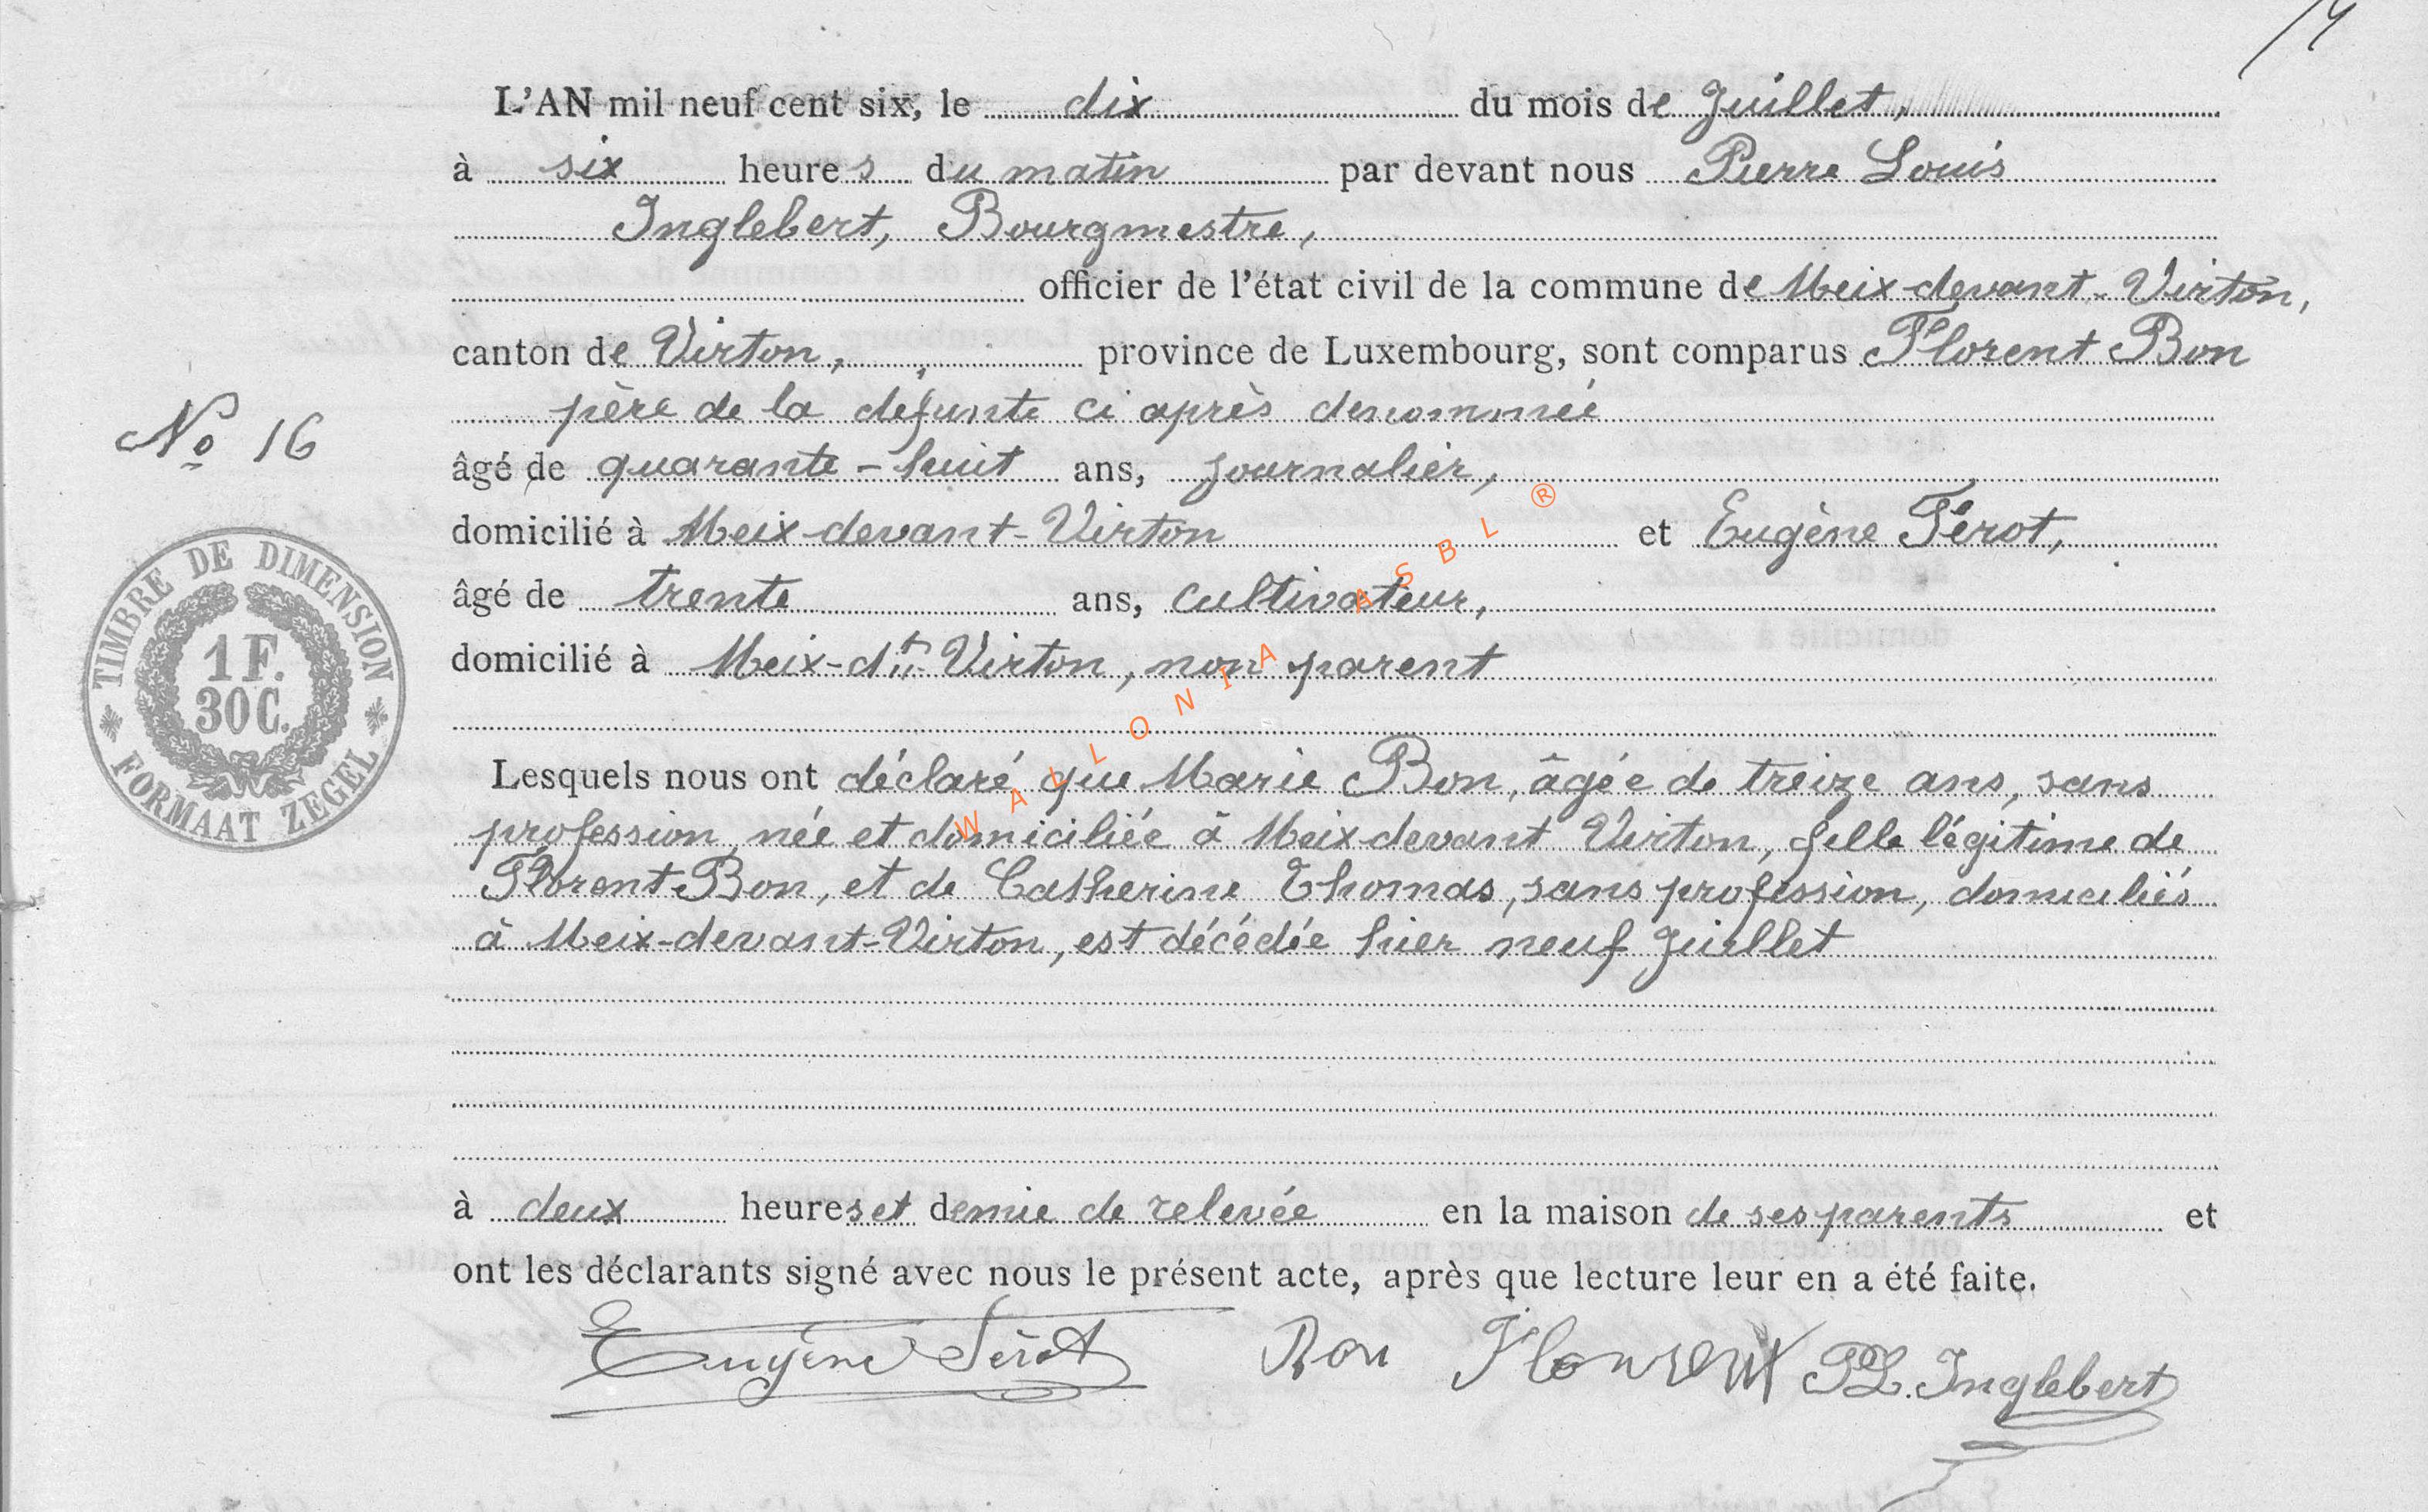 L'AN mil neuf cent six, le dix du mois de Juillet,
à six heures du matin par devant nous Pierre Louis
Inglebert, Bourgmestre,
officier de l'état civil de la commune de Meix-devant-Virton,
canton de Virton, province de Luxembourg, sont comparus Florent Bon
père de la defunte ci après denommée
No 16
âgé de quarante-huit ans, journalier,
domicilié à Meix-devant-Virton et Eugène Férot,
âgé de trente ans, cultivateur,
domicilié à Meix-dt-Virton, non parent
TIMBRE DE DIMENSION
1 F.
30 C.
FORMAAT ZEGEL
Lesquels nous ont déclaré que Marie Bon, âgée de treize ans, sans
profession, née et domiciliée à Meix-devant Virton, fille légitime de
Florent Bon, et de Catherine Thomas, sans profession, domiciliés
à Meix-devant-Virton, est décédée hier neuf Juillet
à deux heures et demie de relevée en la maison de ses parents et
ont les déclarants signé avec nous le présent acte, après que lecture leur en a été faite.
Eugène Férot Bon Flourent PL. Inglebert
WALLONIA ASBL ®